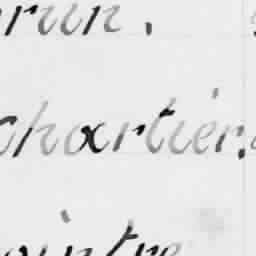 run.
Chartier.
ointre